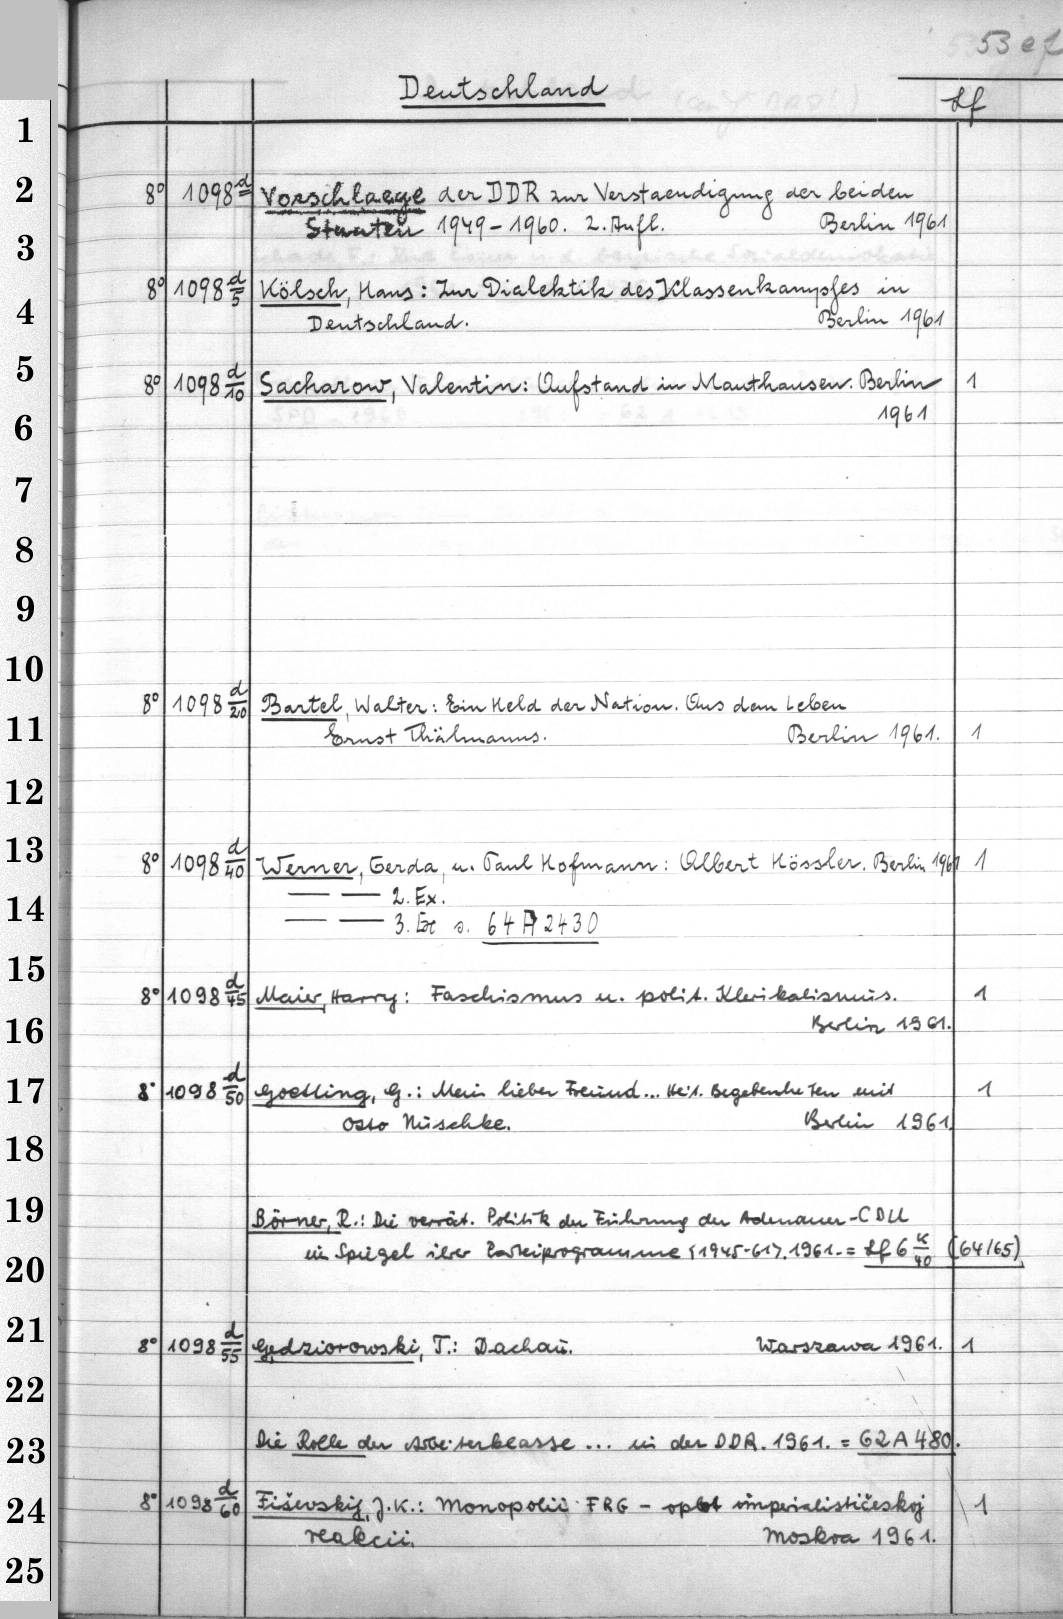 53 e f
Deutschland
Lf
8° 1098 d Vorschlaege der DDR zur Verstaendigung der beiden
Staaten 1949-1960. 2. Aufl. Berlin 1961
8° 1098 d/5 Kölsch, Hans: Zur Dialektik des Klassenkampfes in
Deutschland. Berlin 1961
8° 1098 d/10 Sacharow, Valentin: Aufstand in Mauthausen. Berlin 1
1961
8° 1098 d/20 Bartel, Walter: Ein Held der Nation. Aus dem Leben
Ernst Thälmanns. Berlin 1961. 1
8° 1098 d/40 Werner, Gerda, u. Paul Hofmann: Albert Hössler. Berlin 1961 1
— — 2. Ex.
— — 3. Ex s. 64 A 2430
8° 1098 d/45 Maier, Harry: Faschismus u. polit. Klerikalismus. 1
Berlin 1961.
8° 1098 d/50 Goetting, G.: Mein lieber Freund... Heit. Begebenheiten mit 1
Otto Nuschke. Berlin 1961.
Börner, R.: Die verrät. Politik der Führung der Adenauer-CDU
im Spiegel ihrer Parteiprogramme (1945-61). 1961. = Lf 6 K/40 (64/65)
8° 1098 d/55 Gędziorowski, T.: Dachau. Warszawa 1961. 1
Die Rolle der Arbeiterklasse ... in der DDR. 1961. = 62 A 480.
8° 1098 d/60 Fiševskij, J.K.: Monopolii FRG - oplot imperialističeskoj 1
reakcii. Moskva 1961.
1
2
3
4
5
6
7
8
9
10
11
12
13
14
15
16
17
18
19
20
21
22
23
24
25